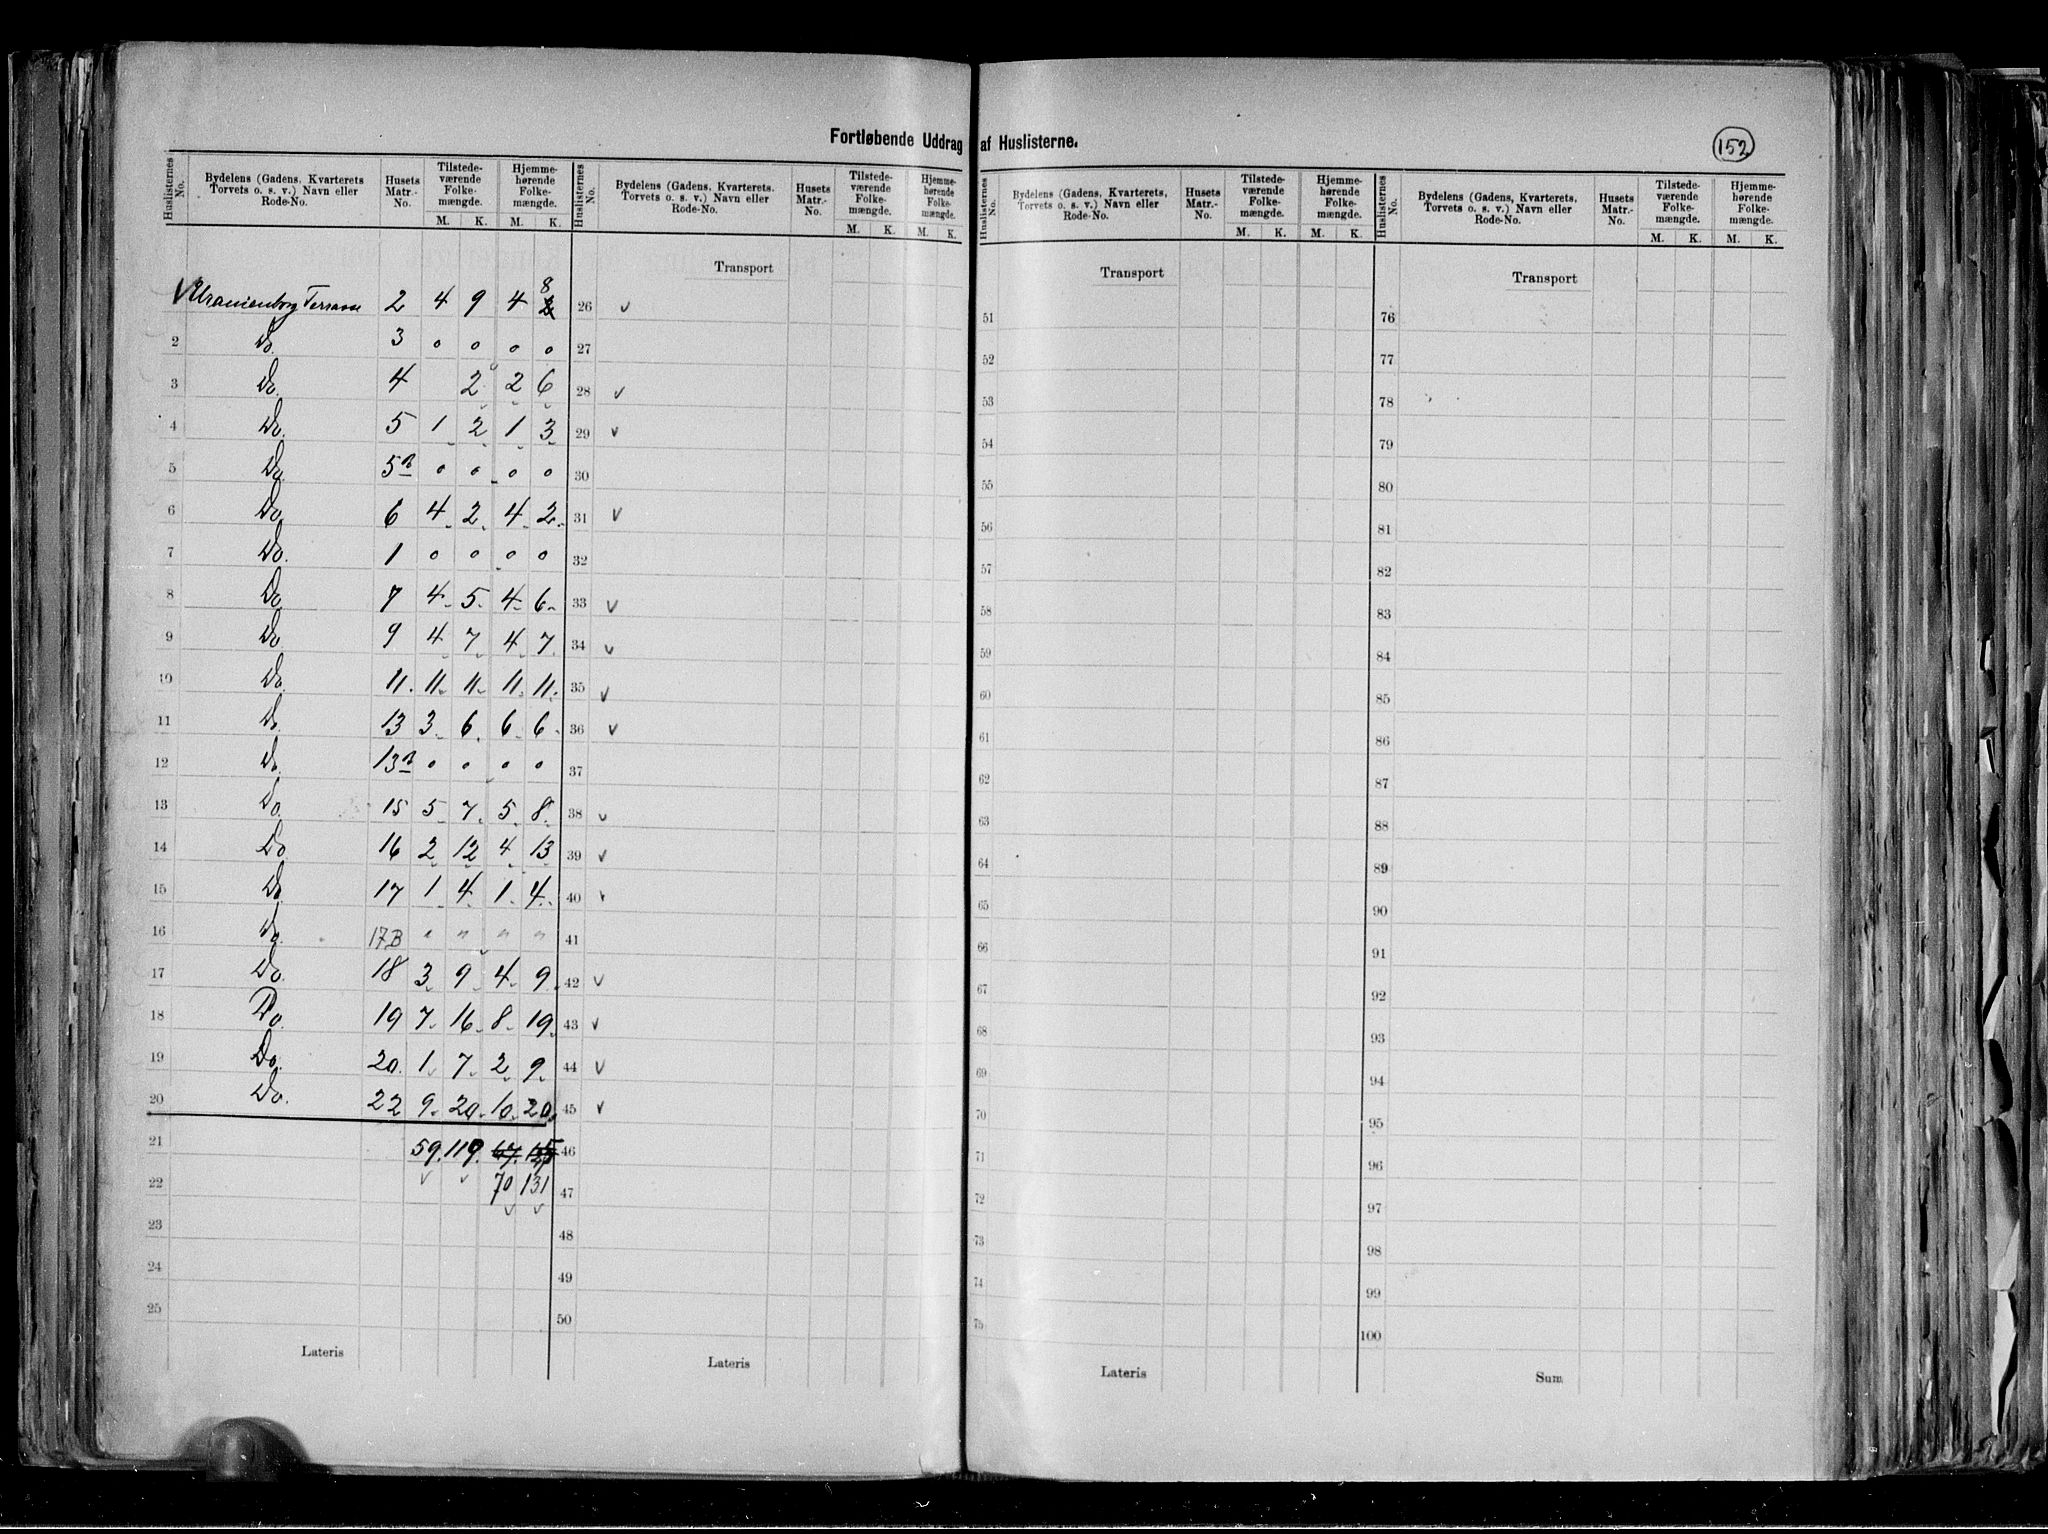 Fortløbende Uddrag af Huslisterne.
152
Huslisternes No. Bydelens (Gadens, Kvarterets Torvets o. s. v.) Navn eller Rode-No. Husets Matr.-No. Tilstedeværende Folkemængde. M. K. Hjemmehørende Folkemængde. M. K.
Uranienborg Terrasse 2 4 9 4 8
2 Do. 3 o o o o
3 Do. 4 2 2 6
4 Do. 5 1 2 1 3
5 Do. 5B o o o o
6 Do. 6 4 2 4 2
7 Do. 1 o o o o
8 Do. 7 4 5 4 6
9 Do. 9 4 7 4 7
10 Do. 11 11 11 11 11
11 Do. 13 3 6 6 6
12 Do. 13B o o o o
13 Do. 15 5 7 5 8
14 Do. 16 2 12 4 13
15 Do. 17 1 4 1 4
16 Do. 17.B " " " "
17 Do. 18 3 9 4 9
18 Do. 19 7 16 8 19
19 Do. 20 1 7 2 9
20 Do. 22 9 20 10 20
21 59. 119. 67.
22 70 131
23
24
25
Lateris
Huslisternes No. Bydelens (Gadens, Kvarterets, Torvets o. s. v.) Navn eller Rode-No. Husets Matr.-No. Tilstedeværende Folkemængde. M. K. Hjemmehørende Folkemængde. M. K.
Transport
26 v
27
28 v
29 v
30
31 v
32
33 v
34 v
35 v
36 v
37
38 v
39 v
40 v
41
42 v
43 v
44 v
45 v
46
47
48
49
50
Lateris
Huslisternes No. Bydelens (Gadens, Kvarterets, Torvets o. s. v.) Navn eller Rode-No. Husets Matr.-No. Tilstedeværende Folkemængde. M. K. Hjemmehørende Folkemængde. M. K.
Transport
51
52
53
54
55
56
57
58
59
60
61
62
63
64
65
66
67
68
69
70
71
72
73
74
75
Lateris
Huslisternes No. Bydelens (Gadens, Kvarterets, Torvets o. s. v.) Navn eller Rode-No. Husets Matr.-No. Tilstedeværende Folkemængde. M. K. Hjemmehørende Folkemængde. M. K.
Transport
76
77
78
79
80
81
82
83
84
85
86
87
88
89
90
91
92
93
94
95
96
97
98
99
100
Sum